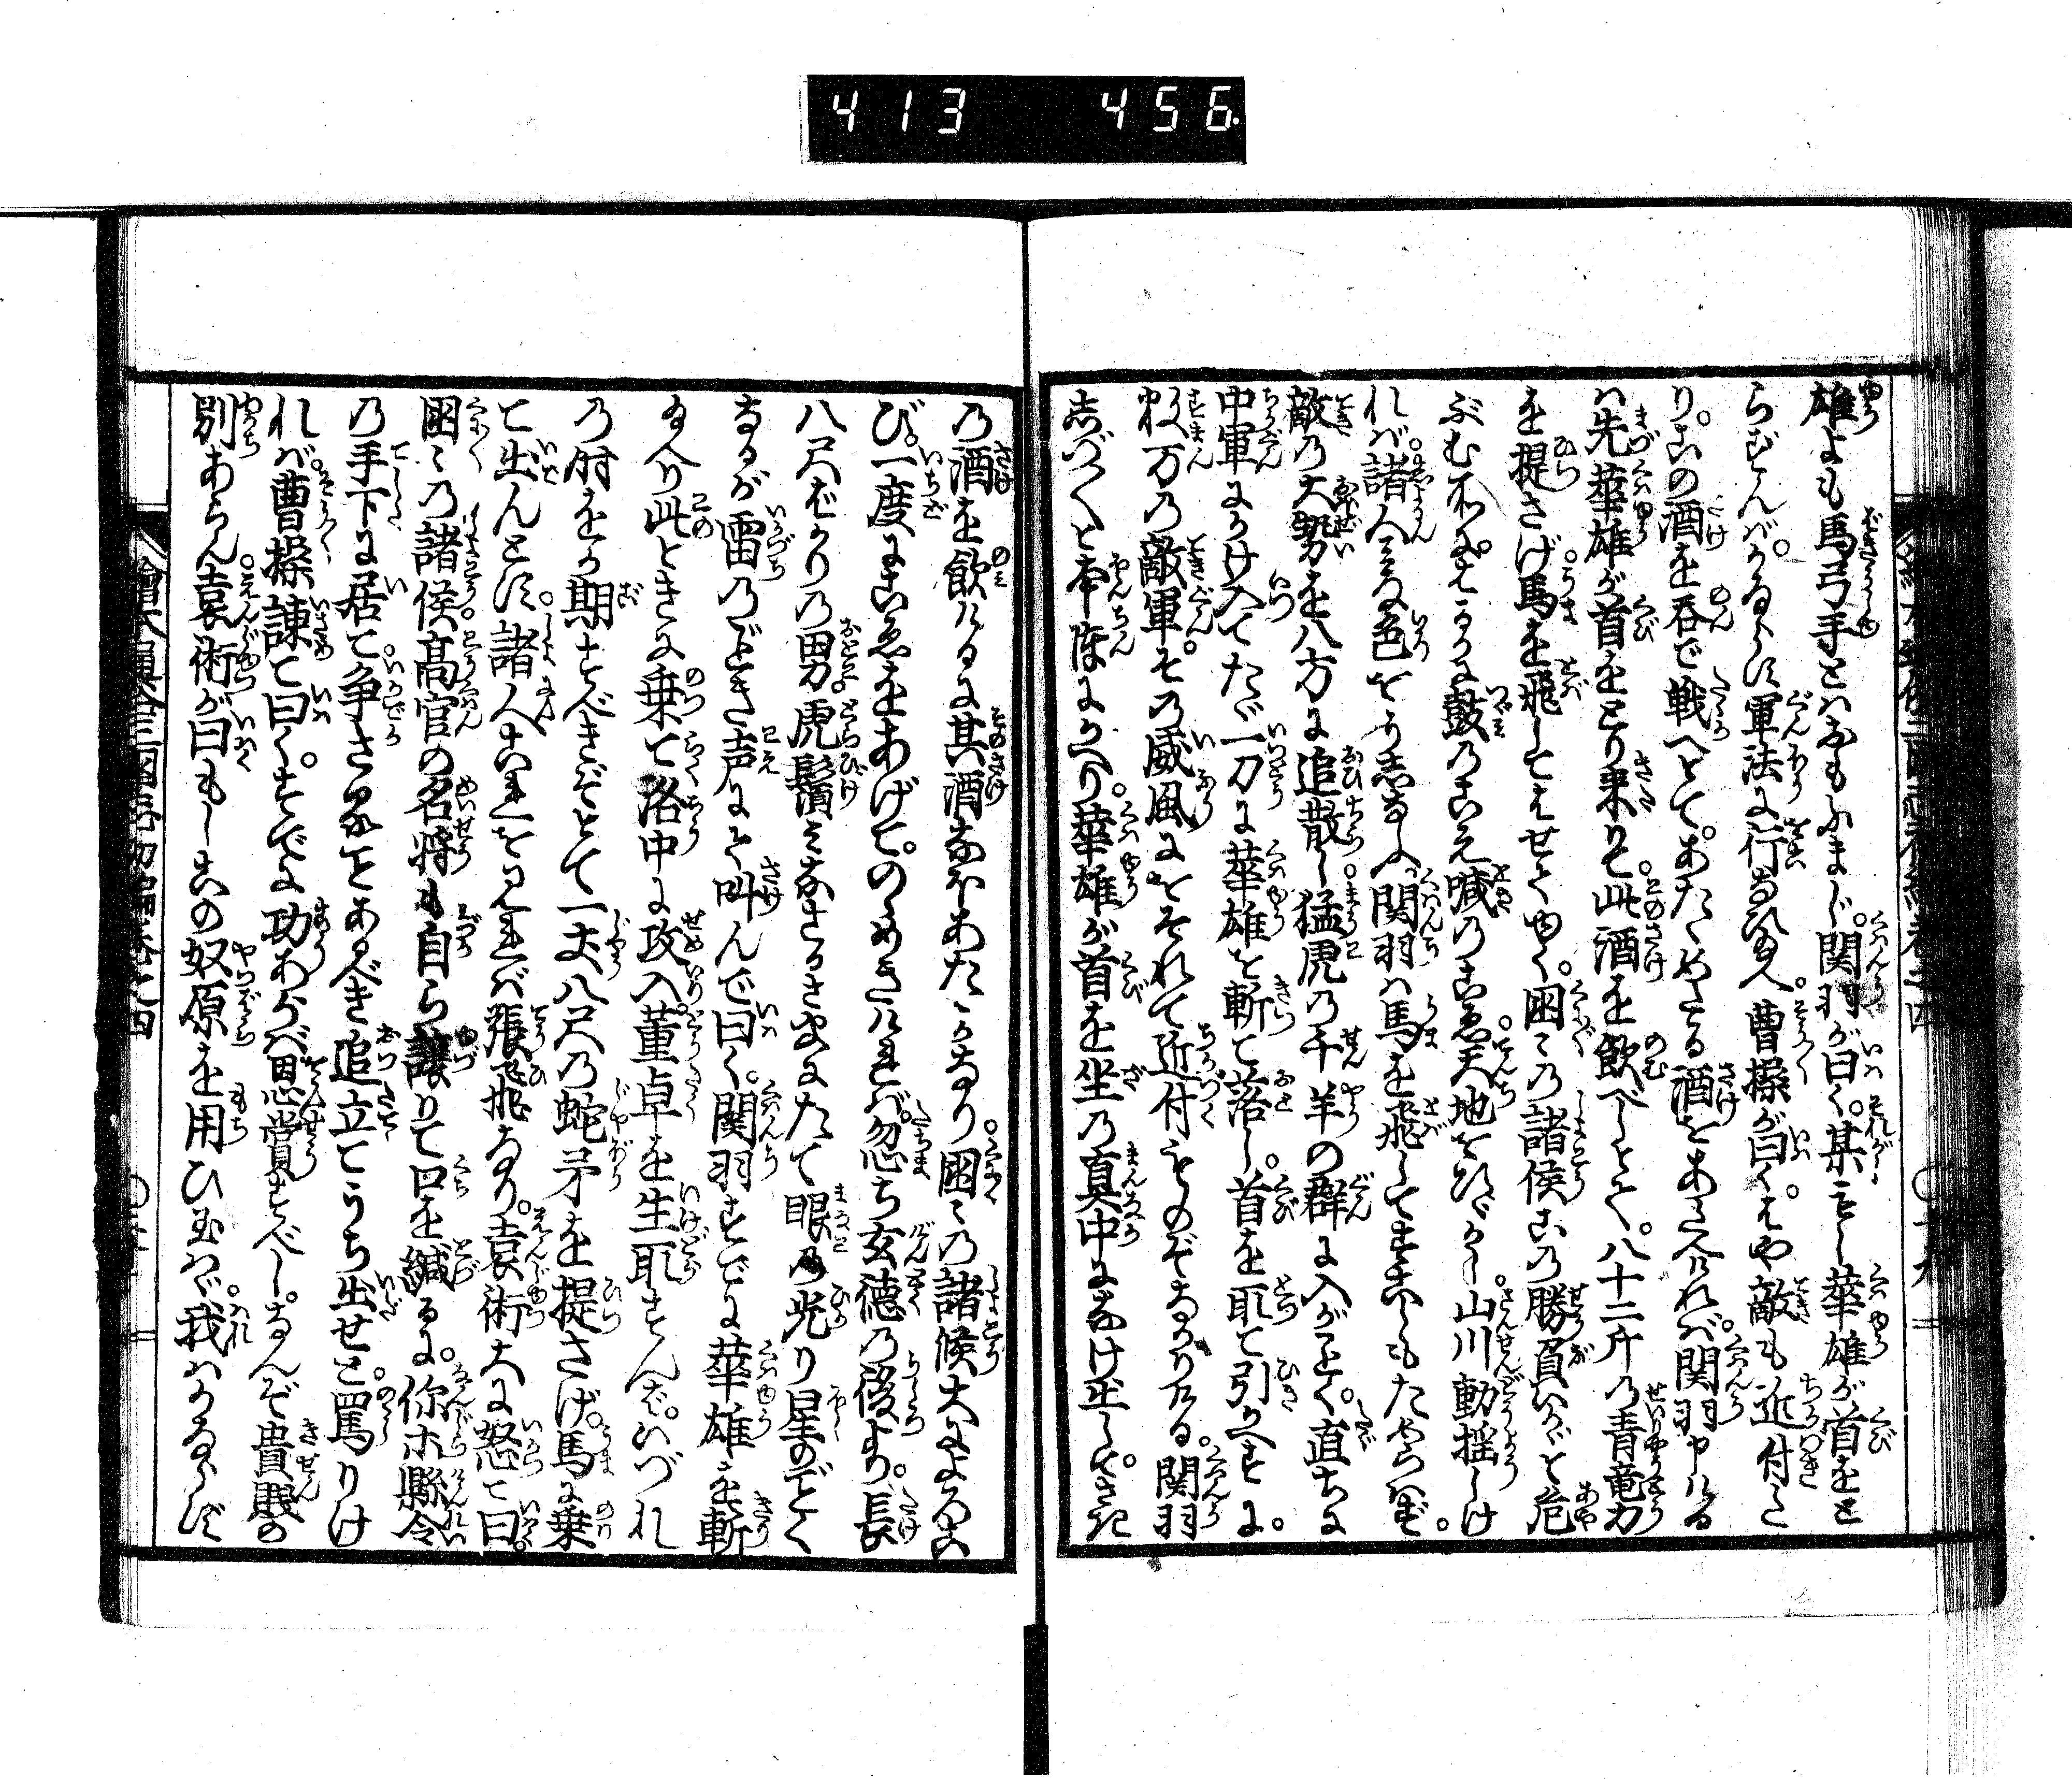 413 456.
雄よも馬弓手とはおもふまじ。関羽が曰く。某もし華雄が首をと
らずんば。かならず軍法に行なひ給へ。曹操が曰く。はや敵も近付た
り。此の酒を呑で戦へとて。あたゝめたる酒をあたへければ。関羽申ける
は先華雄が首をとり来りて。此酒を飲べしとて。八十二斤の青竜刀
を提さげ。馬を飛してはせてゆく。国〻の諸侯此の勝負いかゞと危
ぶむ所に。はるかに鼓のこえ喊のこゑ。天地をひゞかし。山川動揺しけ
れば。諸人みな色をうしなふ。関羽は馬を飛してすこしもたやらはず。
敵の大勢を八方に追散し。猛虎の千羊の群に入がごとく。直ちに
中軍にかけ入てたゞ一刀に華雄を斬て落し。首を取て引かへすに。
数万の敵軍。その威風にをそれて近付ものぞなかりける。関羽
しづ〳〵と本陣にかへり。華雄が首を坐の真中になげ出し。さき
の酒を飲けるに其酒なほあたゝかなり。国〻の諸候大によろこ
び。一度にこゑをあげて。のゝめきければ。忽ち玄徳の後より。長
八尺ばかりの男。虎鬚をさかさまにたて眼の光り星のごとく
なるが雷のごとき声にて叫んで曰く。関羽すでに華雄を斬
たり此ときに乗て洛中に攻入。董卓を生取ずんば。いづれ
の时をか期すべきぞとて一丈八尺の蛇矛を提さげ。馬に乗
て出んとす。諸人これを見れば張飛なり。袁術大に怒て曰。
国〻の諸侯。高官の名将も自ら譲りて口を緘るに。你ホ縣令
の手下に居て。争さることあるべき追立てうち出せと。罵りけ
れば。曹操諌て曰く。すでに功あらば恩賞すべし。なんぞ貴賤の
別あらん。袁術が曰もしこの奴原を用ひ玉はゞ。我はかならず